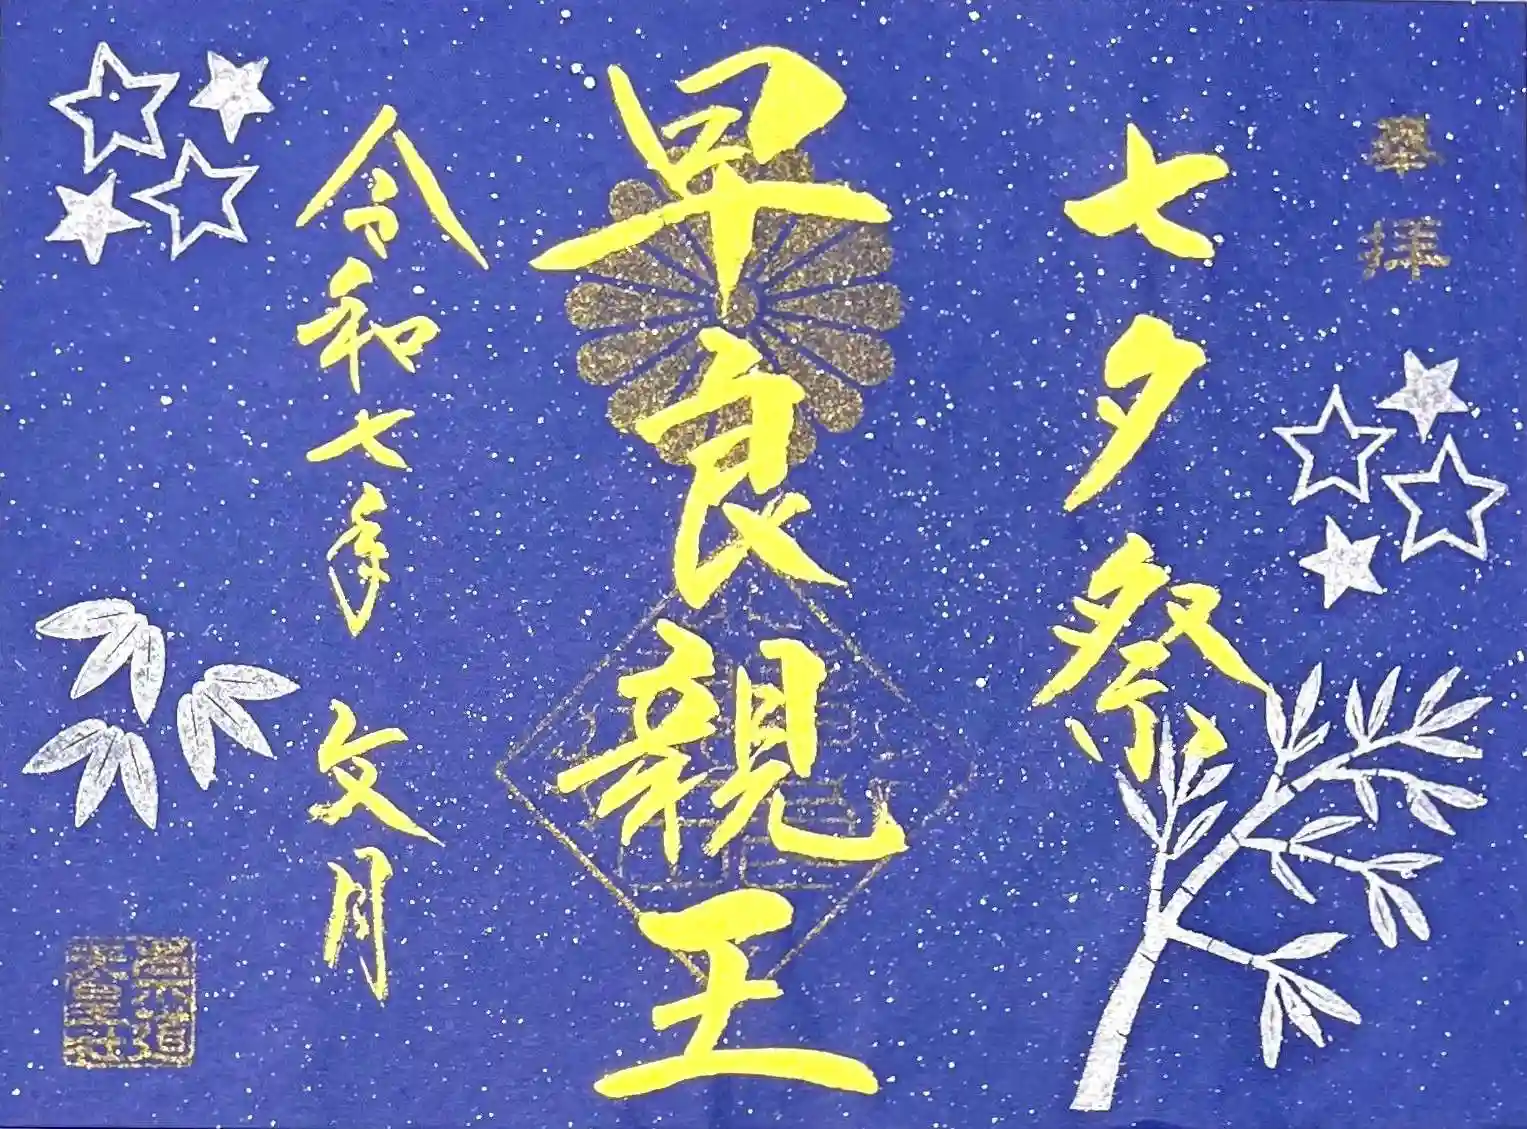 奉拝
七夕祭
早良親王
令和七年
文月